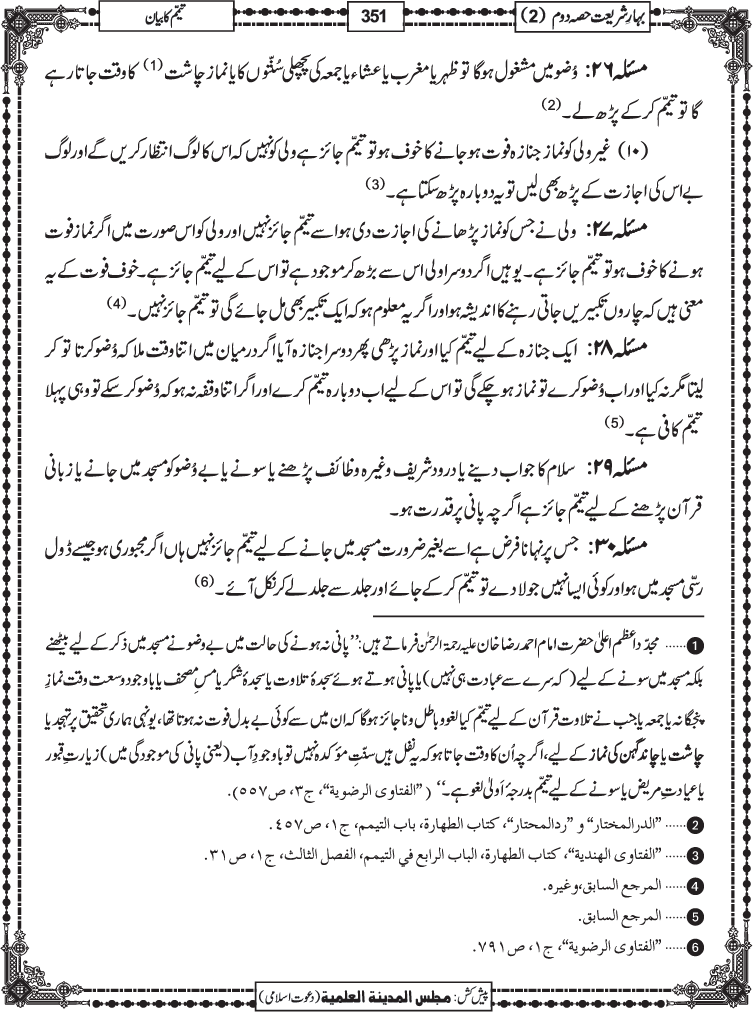 بہار شریعت حصہ دوم (2)
351
تیمّم کا بیان
مسئلہ ۲۶: وُضو میں مشغول ہوگا تو ظہر یا مغرب یا عشاء یا جمعہ کی پچھلی سُنّتوں کا یا نماز چاشت (1) کا وقت جاتا رہے
گا تو تیمّم کر کے پڑھ لے۔ (2)
(۱۰) غیر ولی کو نماز جنازہ فوت ہو جانے کا خوف ہو تو تیمّم جائز ہے ولی کو نہیں کہ اس کا لوگ انتظار کریں گے اور لوگ
بے اس کی اجازت کے پڑھ بھی لیں تو یہ دوبارہ پڑھ سکتا ہے۔ (3)
مسئلہ ۲۷: ولی نے جس کو نماز پڑھانے کی اجازت دی ہو اسے تیمّم جائز نہیں اور ولی کو اس صورت میں اگر نماز فوت
ہونے کا خوف ہو تو تیمّم جائز ہے۔ یوہیں اگر دوسرا ولی اس سے بڑھ کر موجود ہے تو اس کے لیے تیمّم جائز ہے۔ خوف فوت کے یہ
معنی ہیں کہ چاروں تکبیریں جاتی رہنے کا اندیشہ ہو اور اگر یہ معلوم ہو کہ ایک تکبیر بھی مل جائے گی تو تیمّم جائز نہیں۔ (4)
مسئلہ ۲۸: ایک جنازہ کے لیے تیمّم کیا اور نماز پڑھی پھر دوسرا جنازہ آیا اگر درمیان میں اتنا وقت ملا کہ وُضو کرتا تو کر
لیتا مگر نہ کیا اور اب وُضو کرے تو نماز ہو چکے گی تو اس کے لیے اب دوبارہ تیمّم کرے اور اگر اتنا وقفہ نہ ہو کہ وُضو کر سکے تو وہی پہلا
تیمّم کافی ہے۔ (5)
مسئلہ ۲۹: سلام کا جواب دینے یا درود شریف وغیرہ وظائف پڑھنے یا سونے یا بے وُضو کو مسجد میں جانے یا زبانی
قرآن پڑھنے کے لیے تیمّم جائز ہے اگرچہ پانی پر قدرت ہو۔
مسئلہ ۳۰: جس پر نہانا فرض ہے اسے بغیر ضرورت مسجد میں جانے کے لیے تیمّم جائز نہیں ہاں اگر مجبوری ہو جیسے ڈول
رسّی مسجد میں ہو اور کوئی ایسا نہیں جو لا دے تو تیمّم کر کے جائے اور جلد سے جلد لے کر نکل آئے۔ (6)
1 ...... مجدّد اعظم اعلیٰ حضرت امام احمد رضا خان علیہ رحمۃ الرحمٰن فرماتے ہیں: ”پانی نہ ہونے کی حالت میں بے وضو نے مسجد میں ذکر کے لیے بیٹھنے
بلکہ مسجد میں سونے کے لیے (کہ سرے سے عبادت ہی نہیں) یا پانی ہوتے ہوئے سجدۂ تلاوت یا سجدۂ شکر یا مسِ مصحف یا باوجود وسعت وقت نمازِ
پنجگانہ یا جمعہ یا جنب نے تلاوت قرآن کے لیے تیمّم کیا لغو و باطل و ناجائز ہوگا کہ ان میں سے کوئی بے بدل فوت نہ ہوتا تھا، یونہی ہماری تحقیق پر تہجد یا
چاشت یا چاند گہن کی نماز کے لیے، اگرچہ اُن کا وقت جاتا ہو کہ یہ نفل ہیں سنّتِ مؤکدہ نہیں تو باوجودِ آب (یعنی پانی کی موجودگی میں) زیارتِ قبور
یا عیادتِ مریض یا سونے کے لیے تیمّم بدرجۂ اَولیٰ لغو ہے۔“ (”الفتاوی الرضویة“، ج۳، ص۵۵۷).
2 ...... ”الدرالمختار“ و ”ردالمحتار“، كتاب الطهارة، باب التيمم، ج۱، ص۴۵۷.
3 ...... ”الفتاوى الهندية“، كتاب الطهارة، الباب الرابع في التيمم، الفصل الثالث، ج۱، ص۳۱.
4 ...... المرجع السابق، وغيره.
5 ...... المرجع السابق.
6 ...... ”الفتاوى الرضوية“، ج۱، ص۷۹۱.
پیش کش: مجلس المدینة العلمیة (دعوت اسلامی)